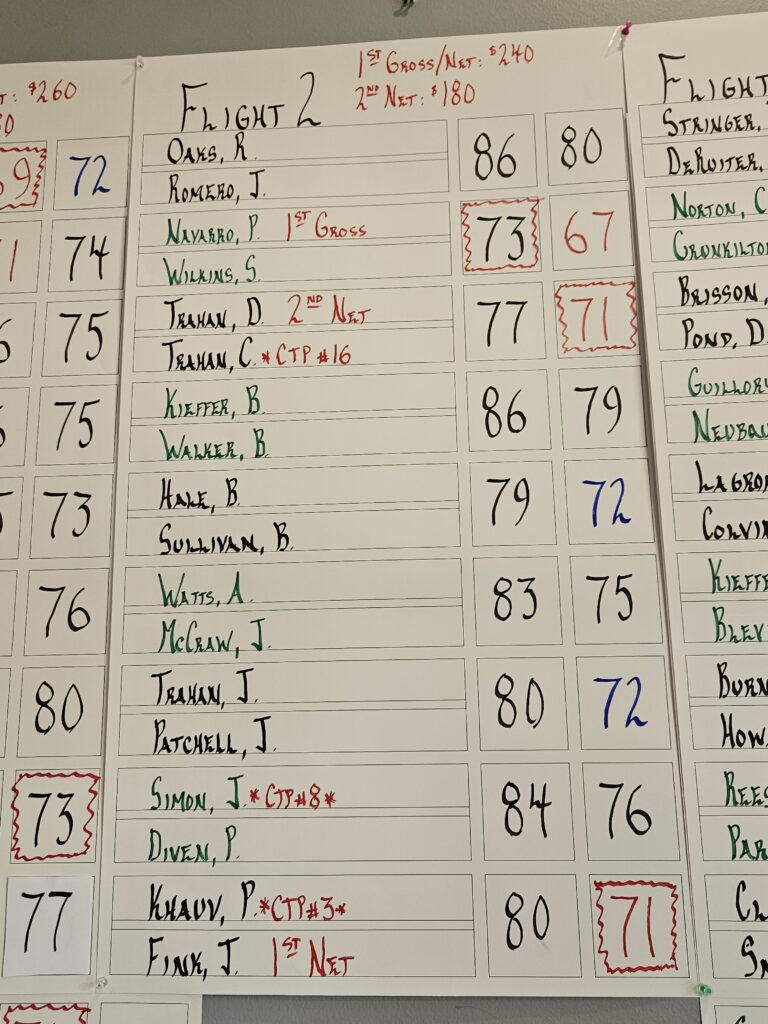 $260
72
74
75
75
73
76
80
73
77
Flight 2
1st Gross/Net: $240
2nd Net: $180
Oaks, R.
Romero, J.
86 80
Navarro, P. 1st Gross
Wilkins, S.
73 67
Trahan, D. 2nd Net
Trahan, C. *CTP #16
77 71
Kieffer, B.
Walker, B.
86 79
Hale, B.
Sullivan, B.
79 72
Watts, A.
McCraw, J.
83 75
Trahan, J.
Patchell, J.
80 72
Simon, J. *CTP#8*
Diven, P.
84 76
Khauv, P. *CTP#3*
Fink, J. 1st Net
80 71
Flight
Stringer,
DeRuiter,
Norton, C
Cronkilton
Brisson,
Pond, D.
Guillory